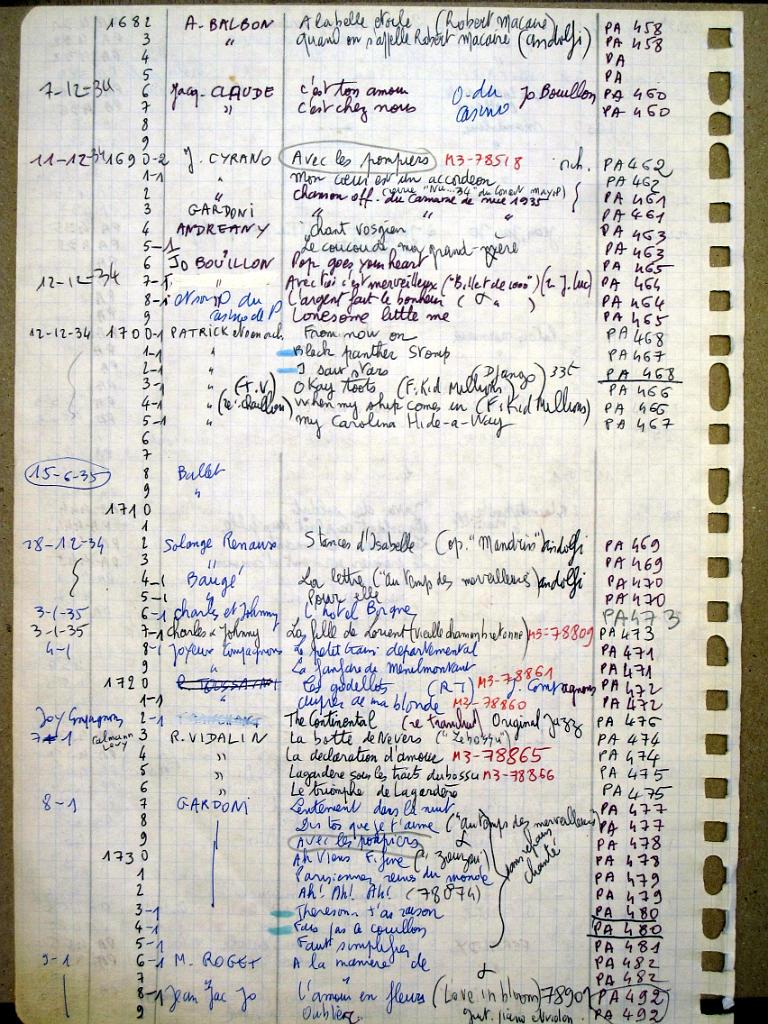 1682 A. BALBON A la belle étoile (Robert Macaire) PA 458
3 " quand on s'appelle Robert Macaire (andolfi) PA 458
4 PA
5 PA
7-12-34 6 Jacq. CLAUDE c'est ton amour O. du Casino Jo Bouillon PA 460
7 " c'est chez nous PA 460
8
9
11-12-34 1690-2 J. CYRANO Avec les pompiers M3-78518 rich. PA 462
1-1 " Mon cœur est un accordéon PA 462
2 " chanson off. du Carnaval de nice 1935 PA 461
3 GARDONI " " " PA 461
4 ANDREANY chant vosgien PA 463
5-1 " Le coucou de mon grand-père PA 463
6 JO BOUILLON Pop goes your heart PA 465
12-12-34 7-1 " Avec toi c'est merveilleux ("Billet de 1000") (2 J. Luc) PA 464
8-1 et son O du L'argent fait le bonheur ( " ) PA 464
9 Lonesome little me PA 465
12-12-34 1700-1 PATRICK et son orch. From now on PA 468
1-1 " Black panther Stomp PA 467
2-1 " I saw stars (Django) 33t PA 468
3-1 " (F.V.) Okay toots (F. Kid Millions) PA 466
4-1 " When my ship comes in (F. Kid Millions) PA 466
5-1 " My Carolina Hide-a-Way PA 467
6
7
15-6-35 8 Ballet
9 "
1710
1
28-12-34 2 Solange Renaux Stances d'Isabelle (op. "Mandrin") andolfi PA 469
3 " PA 469
4-1 Baugé La lettre ("au temps des merveilleuses") andolfi PA 470
5-1 " Pour elle PA 470
3-1-35 6-1 Charles et Johnny L'hotel Borgne PA 473
3-1-35 7-1 Charles & Johnny La fille de Lorient (vieille chanson bretonne) M3-78809 PA 473
4-1 8-1 Joyeux Compagnons Le petit train départemental PA 471
9 " La fanfare de Ménilmontant PA 471
1720 Les godillots (RT) M3-78861 J. Compagnons PA 472
1-1 " auprès de ma blonde M3-78860 PA 472
Joy Compagnons 2-1 The Continental Original Jazz PA 476
7-1 Calmann Levy 3 R. VIDALIN La botte de Nevers ("Le bossu") PA 474
4 " La déclaration d'amour M3-78865 PA 474
5 " Lagardère sous les traits du bossu M3-78866 PA 475
6 " Le triomphe de Lagardère PA 475
8-1 7 GARDONI Lentement dans la nuit PA 477
8 Dis toi que je t'aime ("au temps des merveilleuses") PA 477
9 Avec les pompiers PA 478
1730 Ah Viens Fifine (" Zouzou") PA 478
1 Parisiennes reines du monde PA 479
2 Ah! Ah! Ah! (78874) PA 479
sans refrain chanté
3-1 Thereson t'as raison PA 480
4-1 Fais pas le couillon PA 480
5-1 Faut simplifier PA 481
9-1 6-1 M. ROGET A la manière de PA 482
7 " PA 482
8-1 Jean Jac Jo L'amour en fleurs (Love in bloom) 78901 PA 492
9 Oublier piano et violon PA 492